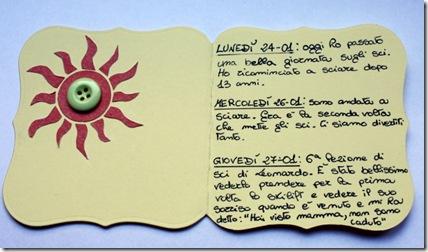 LUNEDÌ 24-01: oggi ho passato
una bella giornata sugli sci.
Ho ricominciato a sciare dopo
13 anni.
MERCOLEDÌ 26-01: sono andata a
sciare. Era la seconda volta
che mette gli sci. Ci siamo divertiti
tanto.
GIOVEDÌ 27-01: 6ª lezione di
sci di Leonardo. È stato bellissimo
vederlo prendere per la prima
volta lo skilift e vedere il suo
sorriso quando è venuto e mi ha
detto: "Hai visto mamma, non sono
caduto"